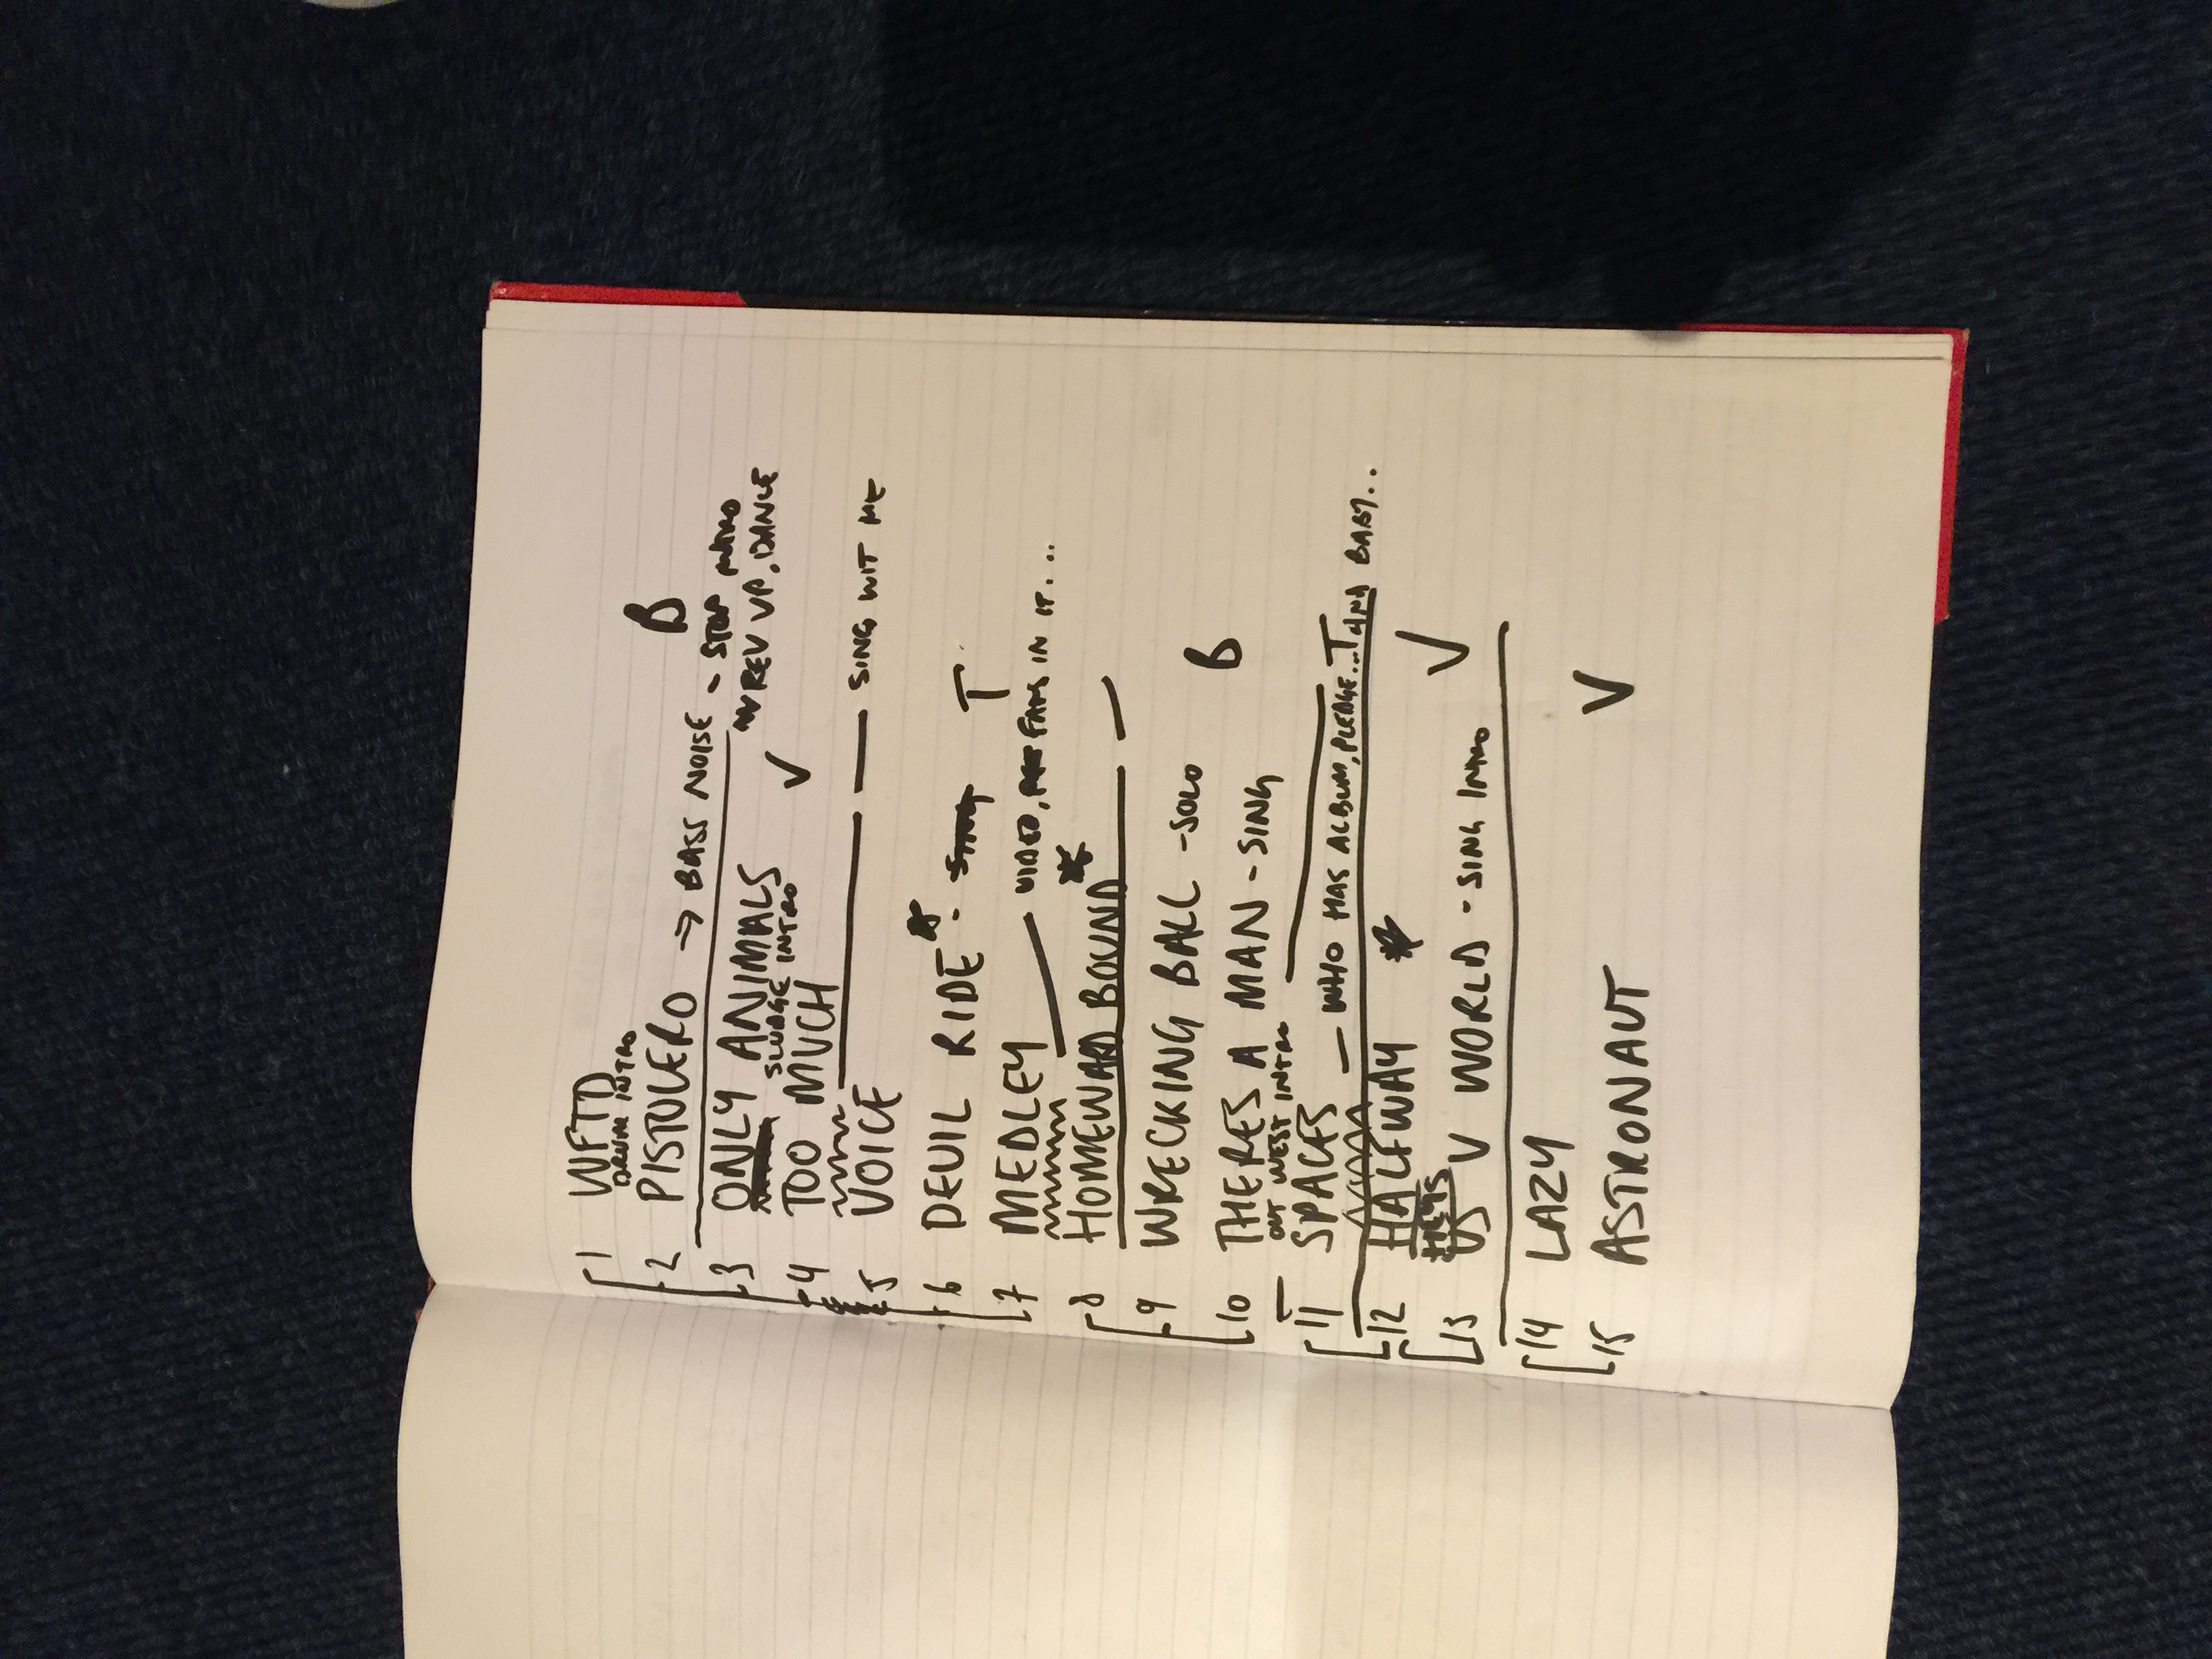 1 WFTD
DRUM INTRO
2 PISTOLERO → BASS NOISE B
3 ONLY ANIMALS - STOP INTRO
REV UP, DANCE
SLUDGE INTRO
4 TOO MUCH V
5 VOICE — SING WIT ME
6 DEVIL RIDE * - T
7 MEDLEY — VIDEO, FANS IN IT...
8 HOMEWARD BOUND *
9 WRECKING BALL - SOLO
10 THERES A MAN - SING B
OUT WEST INTRO
11 SPACES — WHO HAS ALBUM, PLEDGE... T BABY..
12 HALFWAY *
13 US V WORLD - SING INTRO V
14 LAZY
15 ASTRONAUT V